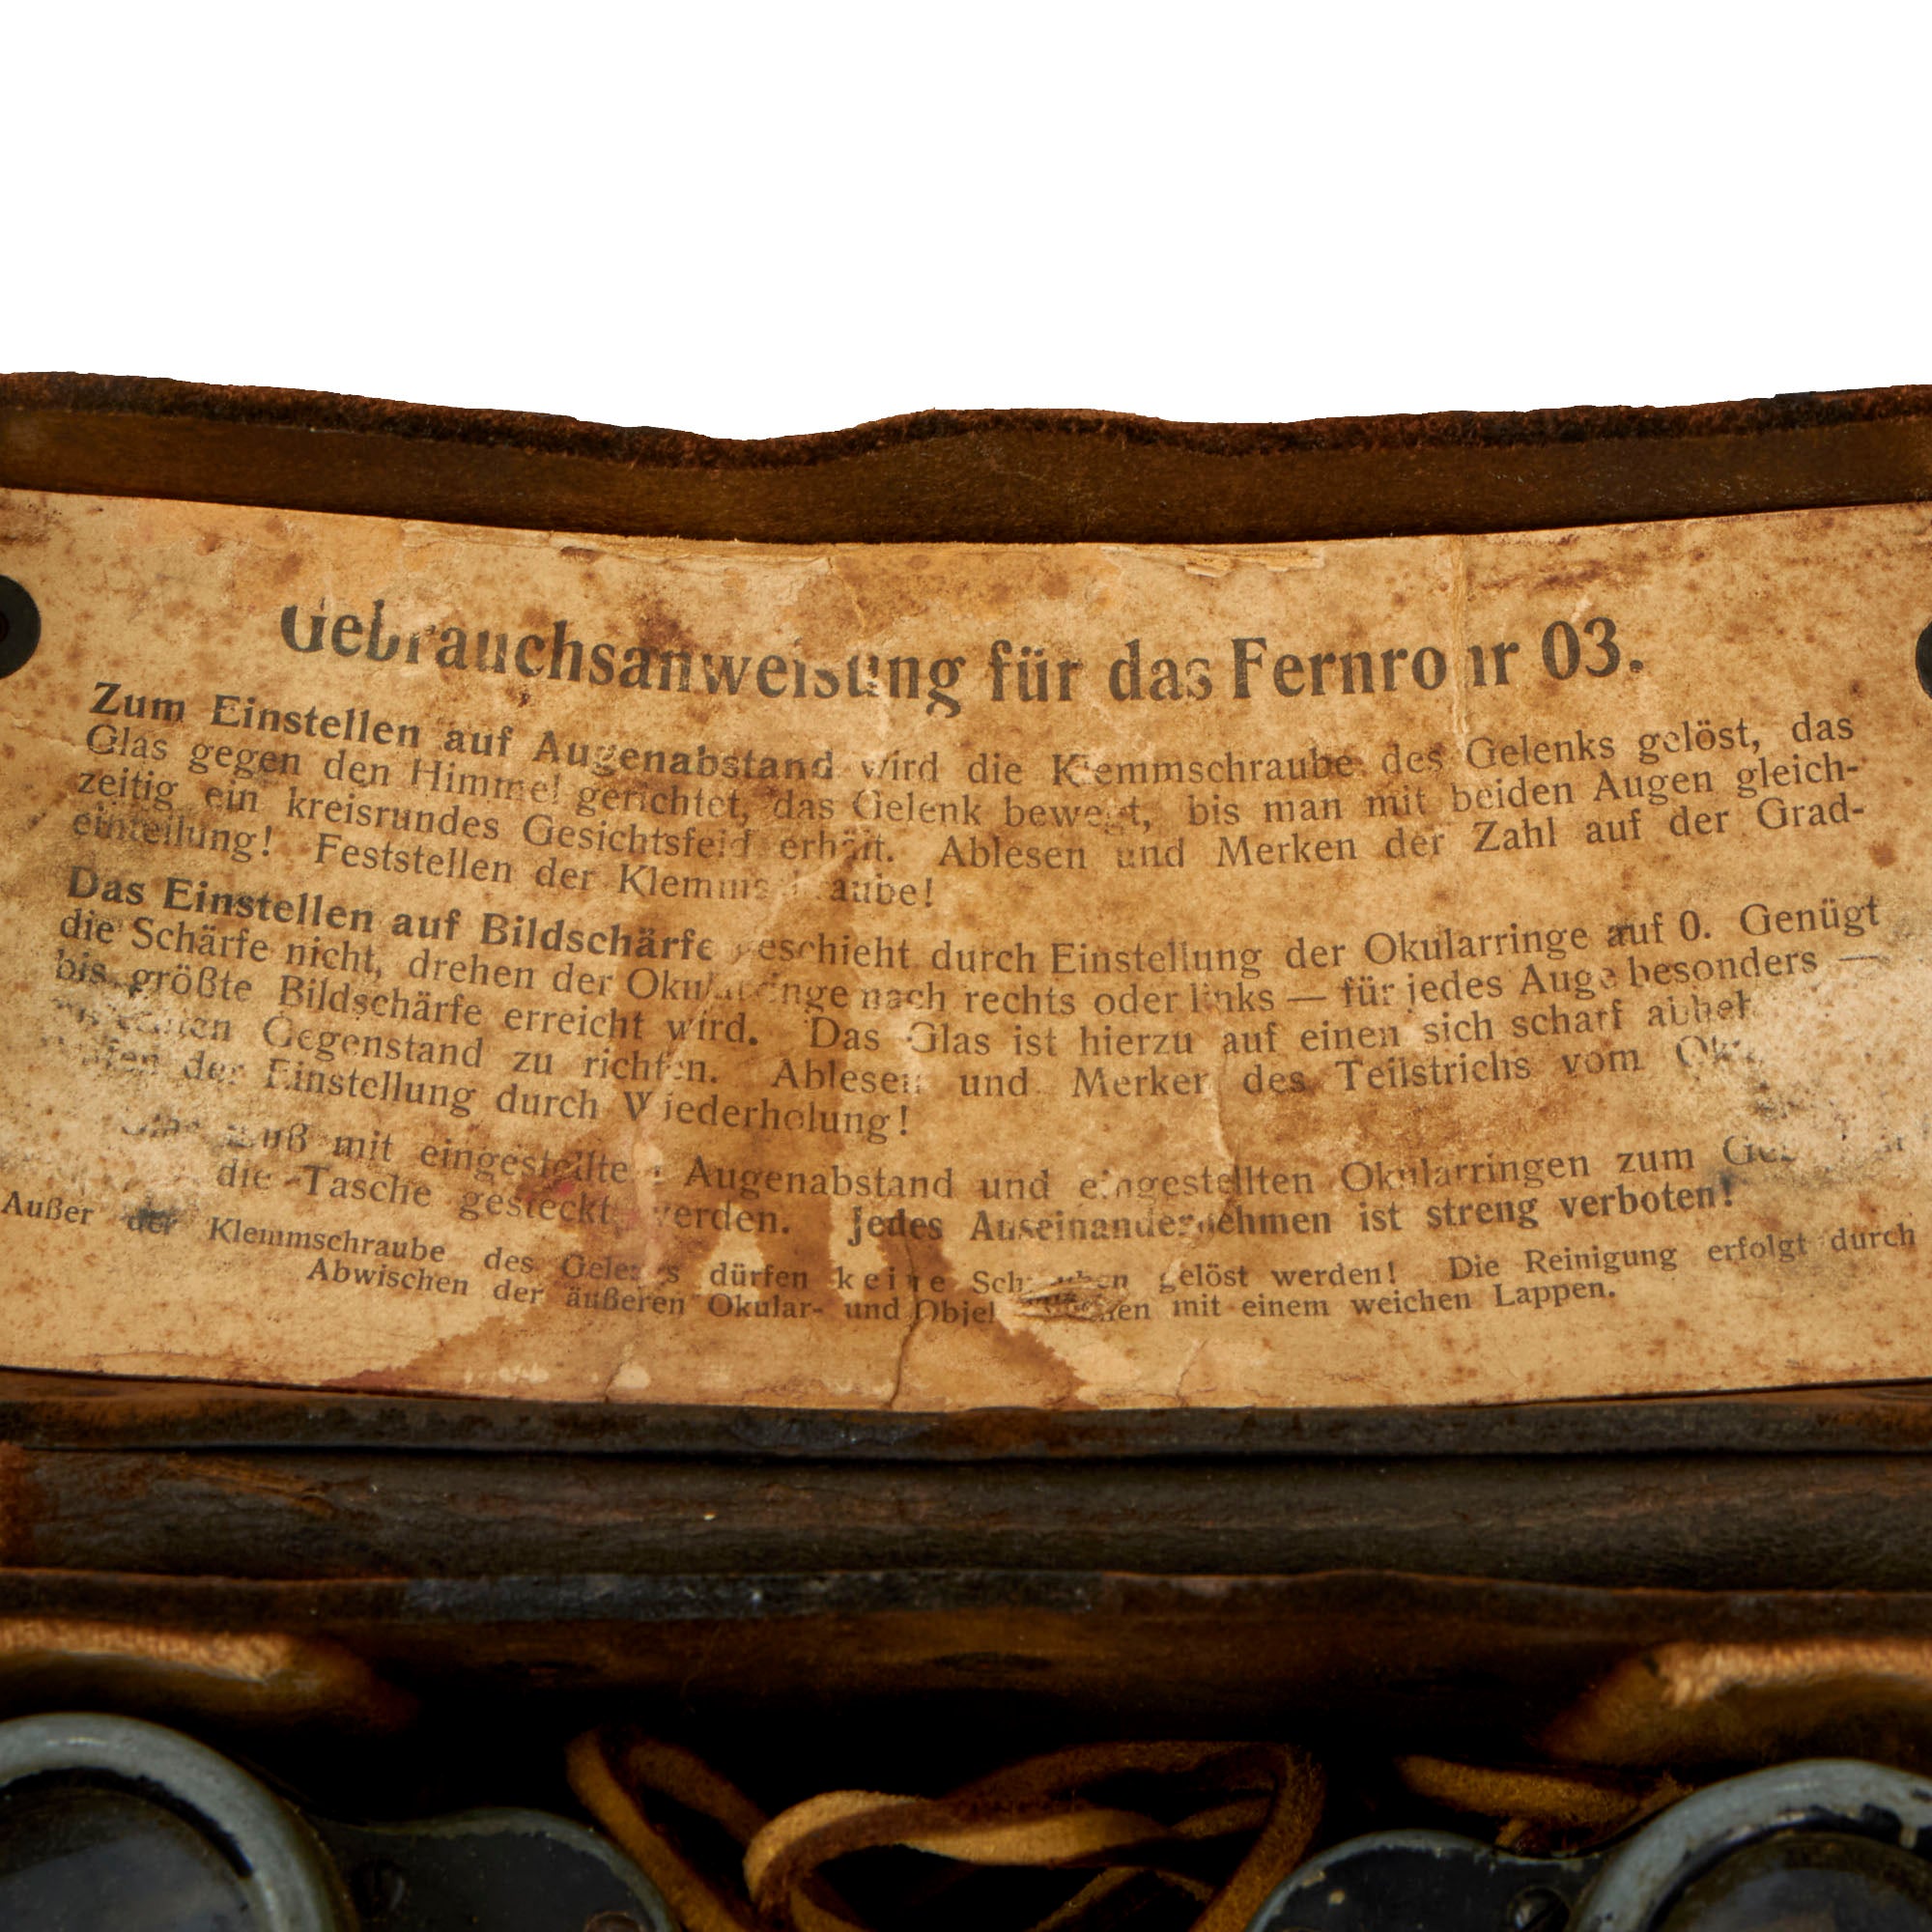 Gebrauchsanweisung für das Fernrohr 03.
Zum Einstellen auf Augenabstand wird die Klemmschraube des Gelenks gelöst, das
Glas gegen den Himmel gerichtet, das Gelenk bewegt, bis man mit beiden Augen gleich-
zeitig ein kreisrundes Gesichtsfeld erhält. Ablesen und Merken der Zahl auf der Grad-
einteilung! Feststellen der Klemmschraube!
Das Einstellen auf Bildschärfe geschieht durch Einstellung der Okularringe auf 0. Genügt
die Schärfe nicht, drehen der Okularringe nach rechts oder links — für jedes Auge besonders —
bis größte Bildschärfe erreicht wird. Das Glas ist hierzu auf einen sich scharf
Gegenstand zu richten. Ablesen und Merken des Teilstrichs vom
der Einstellung durch Wiederholung!
muß mit eingestellte Augenabstand und eingestellten Okularringen zum
die Tasche gesteckt werden. Jedes Auseinandernehmen ist streng verboten!
Außer der Klemmschraube des Gelenks dürfen keine Schrauben gelöst werden! Die Reinigung erfolgt durch
Abwischen der äußeren Okular- und mit einem weichen Lappen.